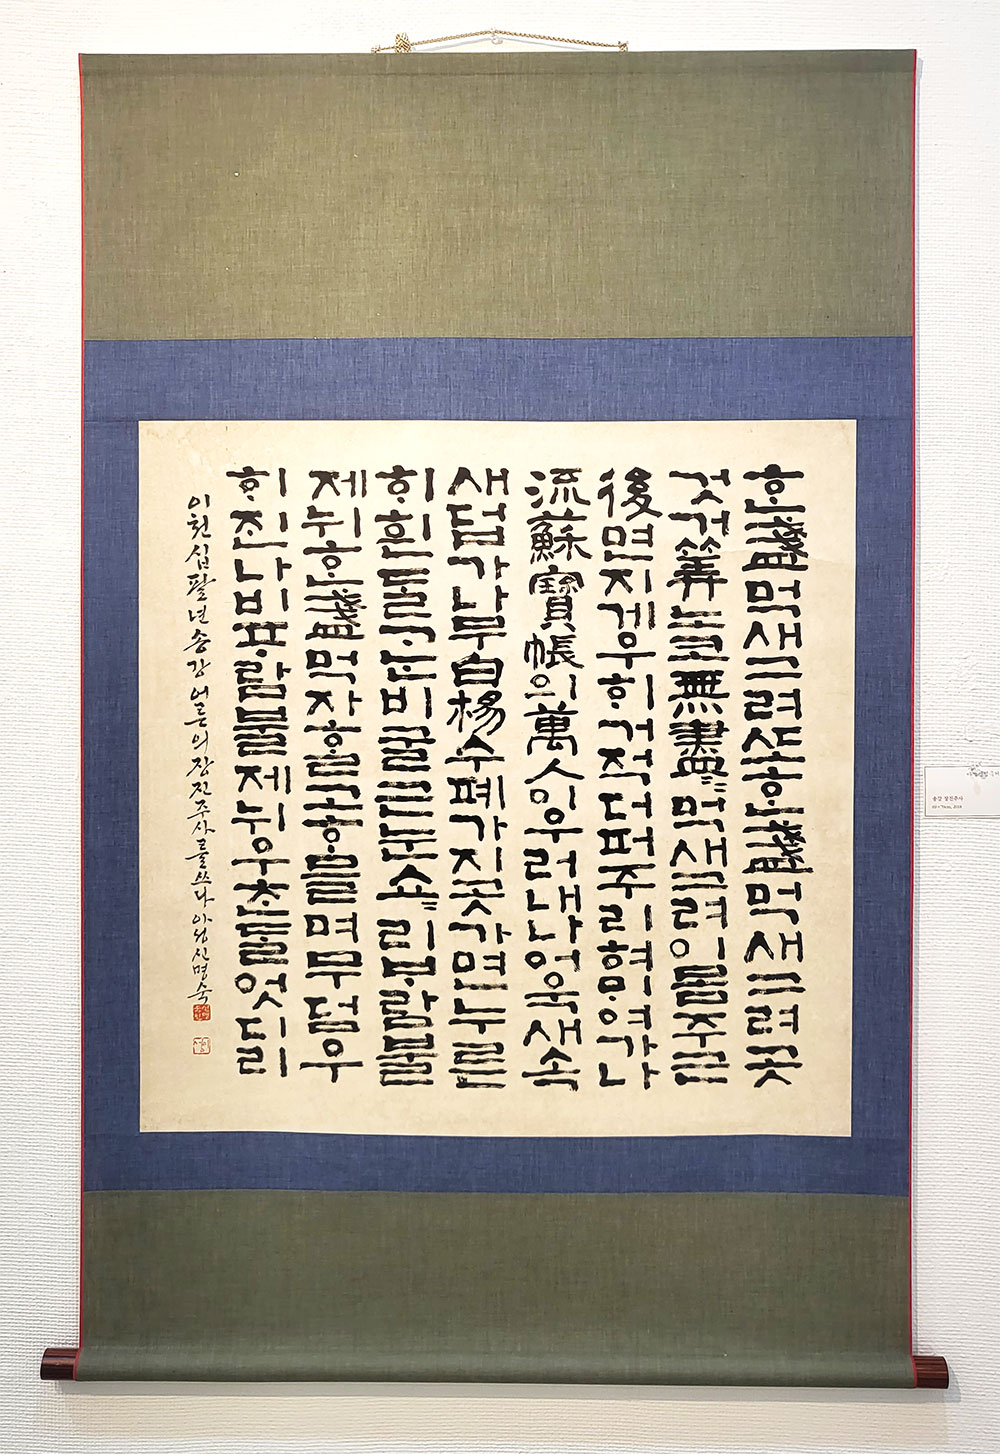 ᄒᆞᆫ盞먹새그려ᄯᅩᄒᆞᆫ盞먹새그려곳
것거算노코無盡〻먹새그려이몸주근
後면지게우ᄒᆡ거적더퍼주리혀ᄆᆡ여가나
流蘇寶帳의萬人이우러녜나어욱새속
새덥가나무白楊수폐가기곳가면누른
ᄒᆡ흰ᄃᆞᆯᄀᆞᄂᆞᆫ비굴근눈쇼〻리ᄇᆞ람불
제뉘ᄒᆞᆫ盞먹쟈ᄒᆞᆯ고ᄒᆞ믈며무덤우
ᄒᆡ진나비ᄑᆞ람불제뉘우ᄎᆞᆫᄃᆞᆯ엇디리
이천십팔년송강어른의장진주사를쓰다 신명숙
송강 장진주사